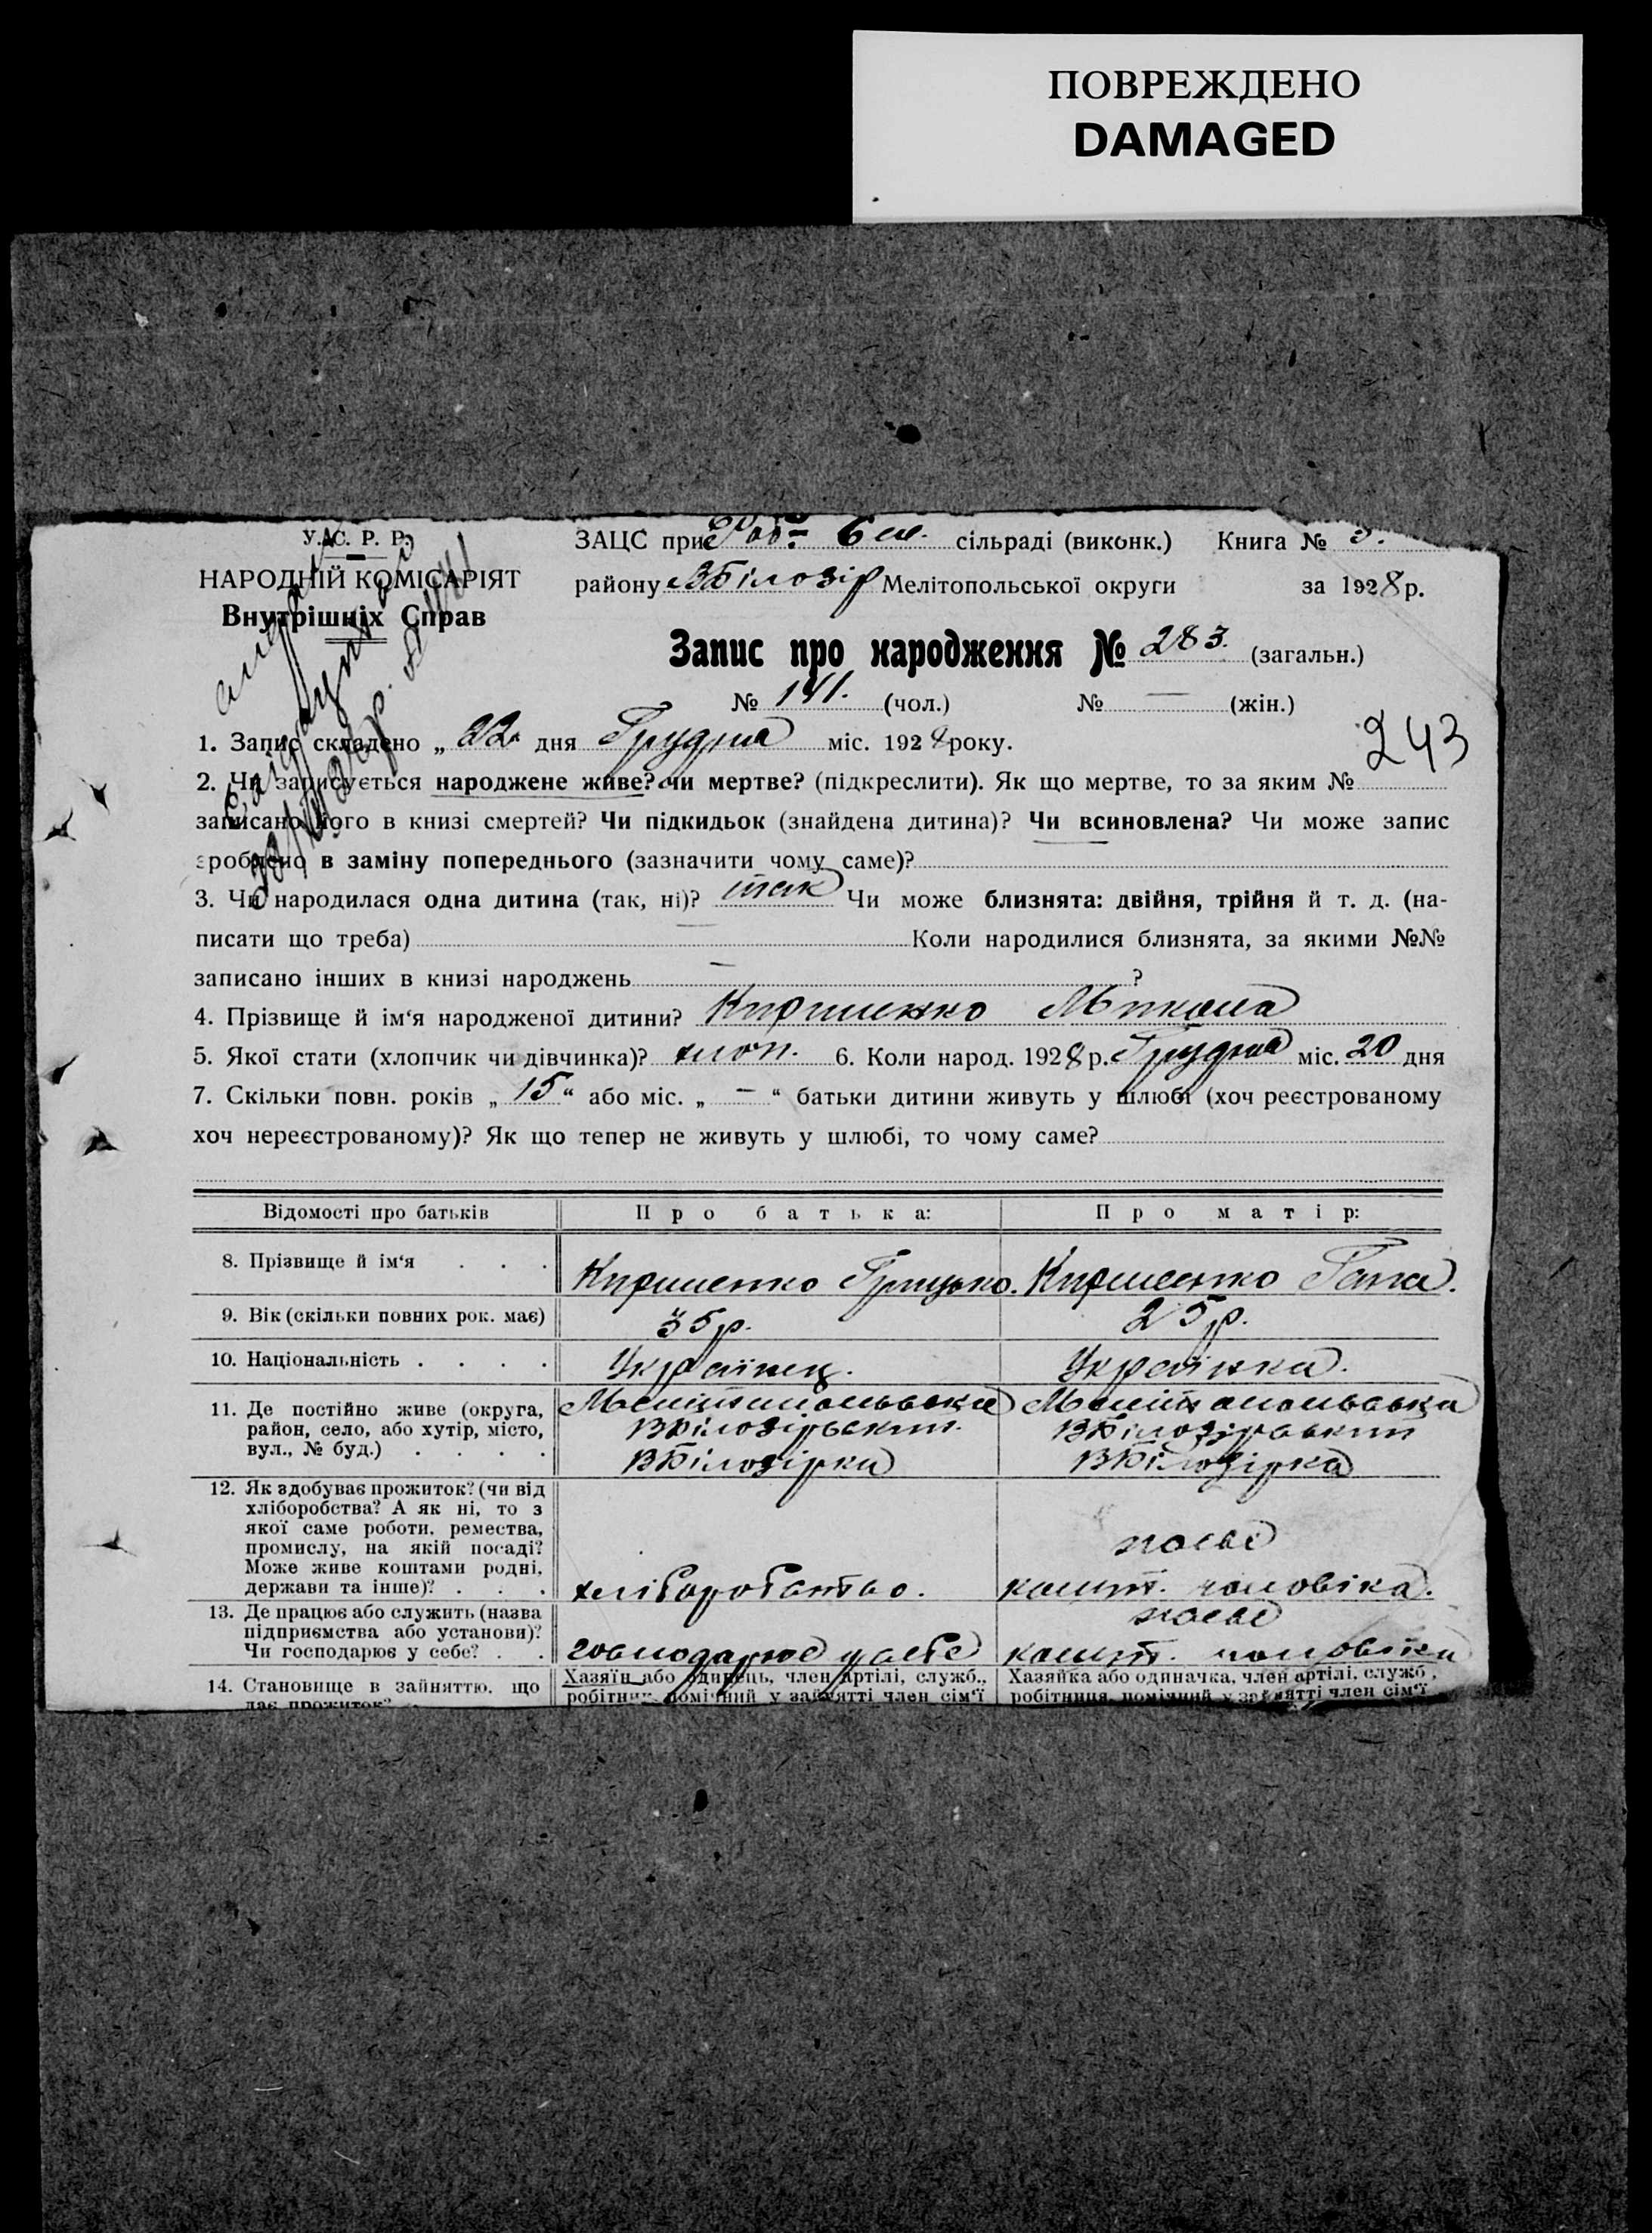 ПОВРЕЖДЕНО
DAMAGED
У. С. Р. Р.
НАРОДНІЙ КОМІСАРІЯТ
Внутрішніх Справ
ЗАЦС при сільраді (виконк.) Книга №
району ВБілозір Мелітопольської округи за 1928 р.
Запис про народження № 283. (загальн.)
№ 141. (чол.) № — (жін.)
243
1. Запис складено „ 22 дня Грудня міс. 1928 року.
2. Чи записується народжене живе? чи мертве? (підкреслити). Як що мертве, то за яким №
записано його в книзі смертей? Чи підкидьок (знайдена дитина)? Чи всиновлена? Чи може запис
зроблено в заміну попереднього (зазначити чому саме)?
3. Чи народилася одна дитина (так, ні)? так Чи може близнята: двійня, трійня й т. д. (на-
писати що треба) — Коли народилися близнята, за якими №№
записано інших в книзі народжень — ?
4. Прізвище й ім'я народженої дитини? Кириленко Микола
5. Якої стати (хлопчик чи дівчинка)? хлоп. 6. Коли народ. 1928 р. Грудня міс. 20 дня
7. Скільки повн. років „ 15 “ або міс. „ — “ батьки дитини живуть у шлюбі (хоч реєстрованому
хоч нереєстрованому)? Як що тепер не живуть у шлюбі, то чому саме?
Відомості про батьків Про батька: Про матір:
8. Прізвище й ім'я . . . Кириленко Грицько. Кириленко Гана.
9. Вік (скільки повних рок. має) 35 р. 25 р.
10. Національність . . . . Українец. Українка.
11. Де постійно живе (округа,
район, село, або хутір, місто,
вул., № буд.) . . . .
Мелітопольська
ВБілозірський
ВБілозірка
Мелітопольська
ВБілозірський
ВБілозірка
12. Як здобуває прожиток? (чи від
хліборобства? А як ні, то з
якої саме роботи, ремества,
промислу, на якій посаді?
Може живе коштами родні,
держави та інше)? . . .
хліборобство.
кошт. чоловіка.
13. Де працює або служить (назва
підприємства або установи)?
Чи господарює у себе? . .
господарює у себе
кошт. чоловіка
14. Становище в зайняттю, що
дає прожиток?
Хазяїн або одинець, член артілі, служб.,
робітник, помічний у зайнятті член сім'ї
Хазяйка або одиначка, член артілі, служб.,
робітниця, помічний у зайнятті член сім'ї